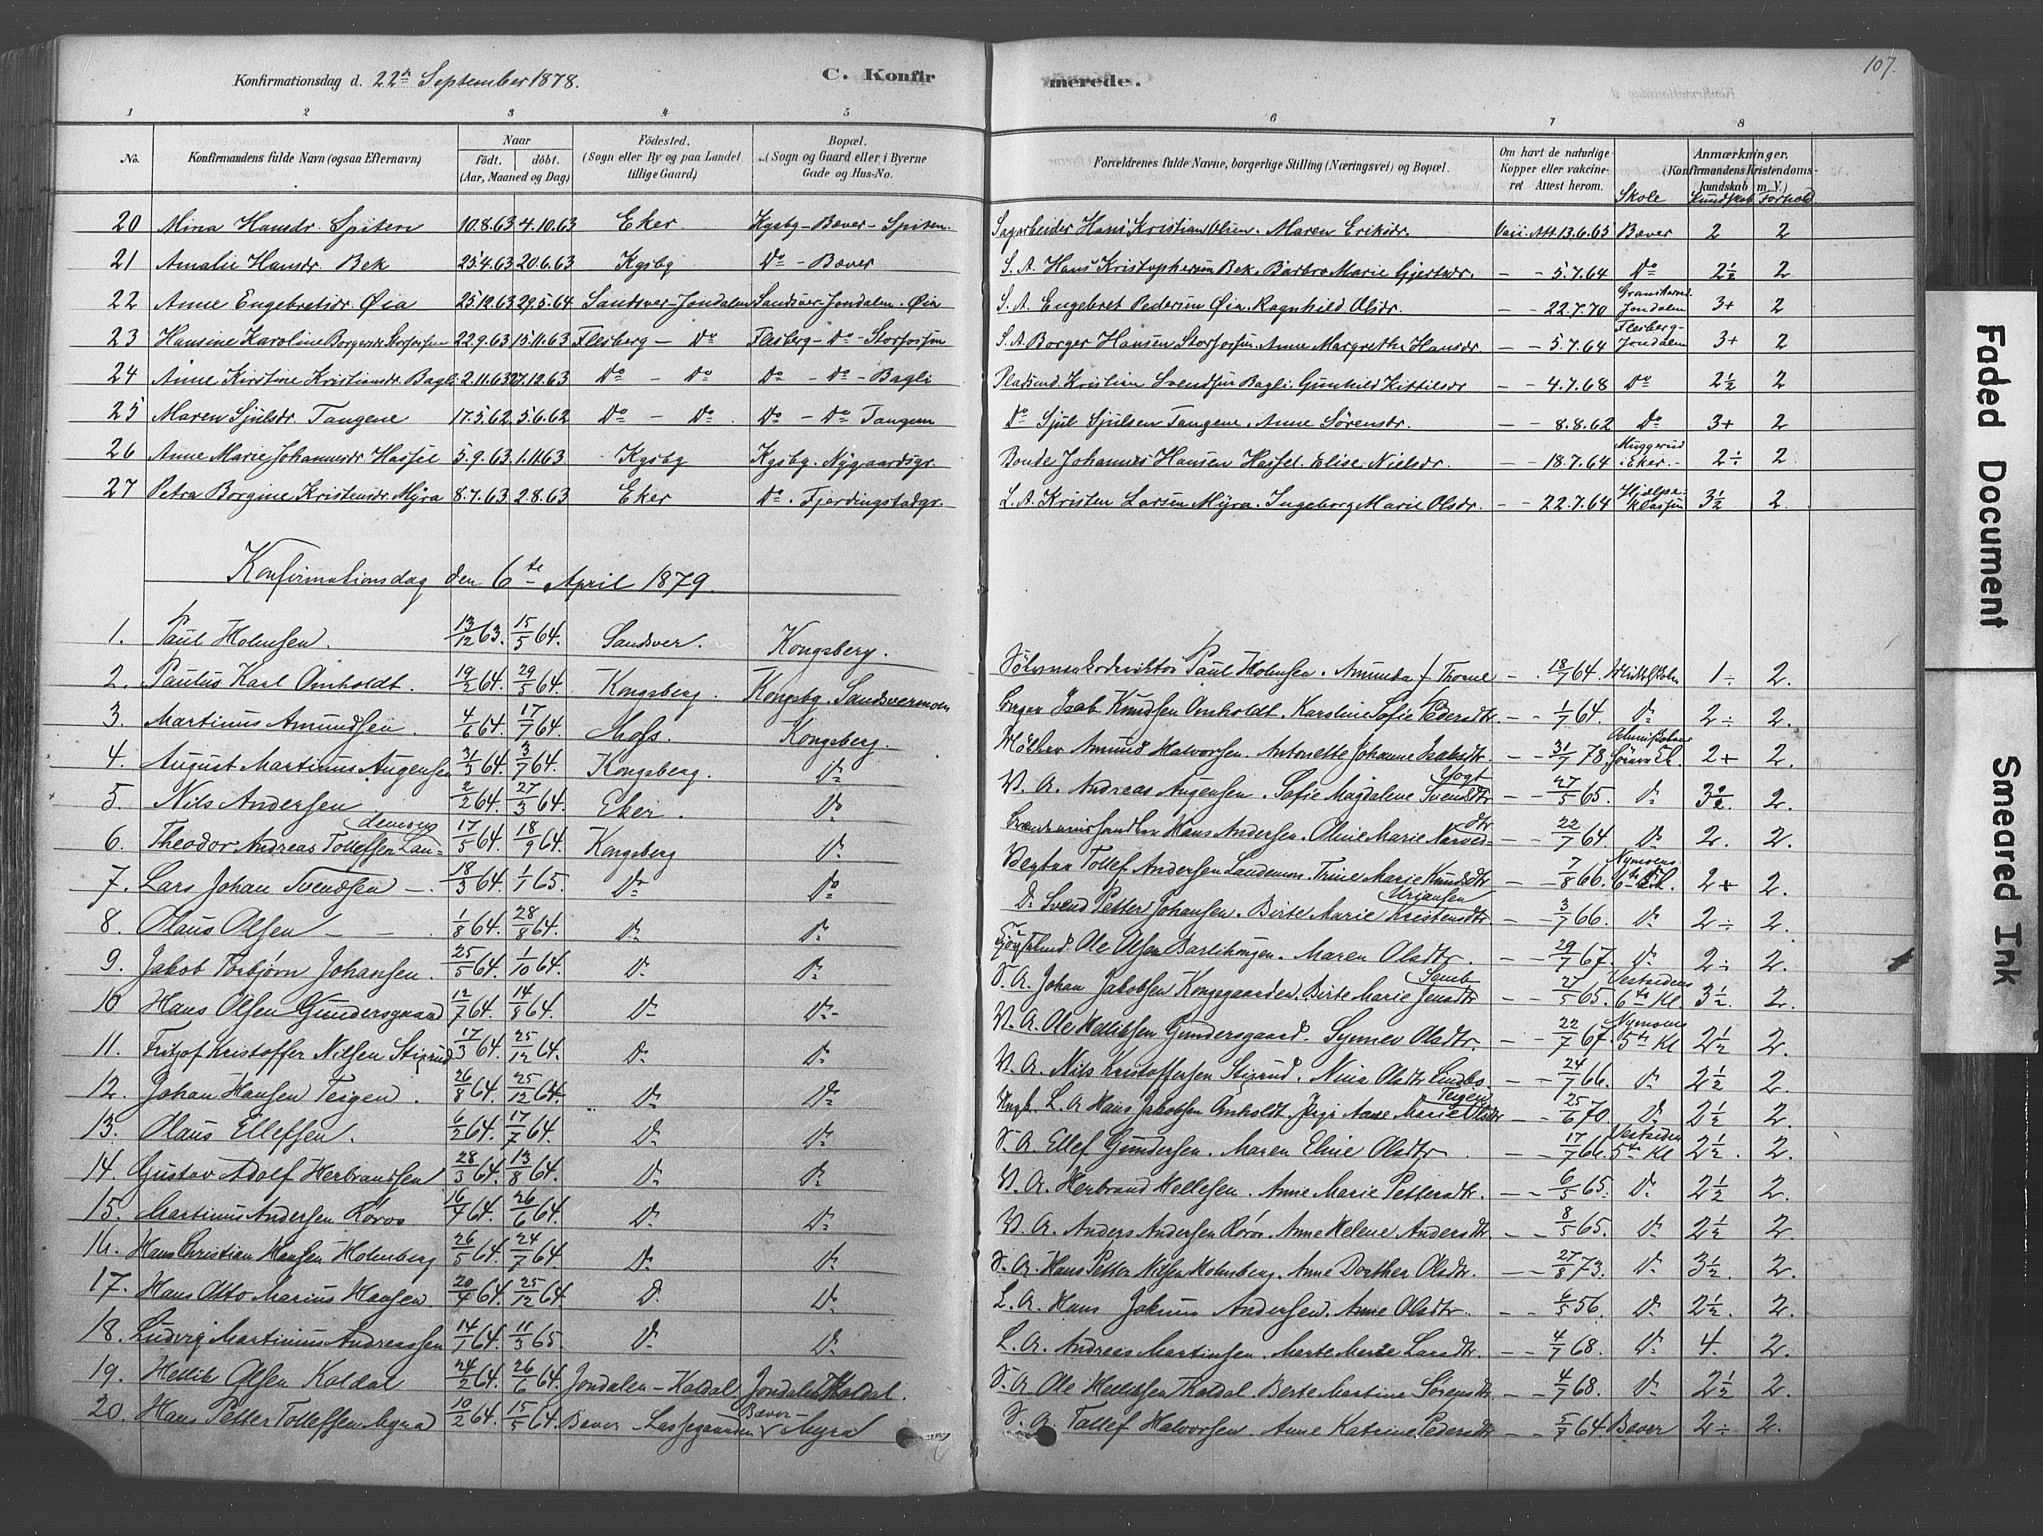 Konfirmationsdag d. 22de September 1878. C. Konfir merede. 107.
1 2 3 4 5 6 7 8
No. Konfirmandens fulde Navn (ogsaa Efternavn) Naar födt. döbt. (Aar, Maaned og Dag) Födested. (Sogn eller By og paa Landet tillige Gaard) Bopæl. (Sogn og Gaard eller i Byerne Gade og Hus-No. Forældrenes fulde Navne, borgerlige Stilling (Næringsvei) og Bopæl. Om havt de naturlige Kopper eller vakcineret. Attest herom. Anmærkninger. (Konfirmandens Kristendomskundskab m. V.) Skole Kundskab Forhold
20 Mina Hansdr. Spiten 10.8.63 4.10.63 Eker Kgsbg - Bæver - Spiten. Sagarbeider Hans Kristian Olsen. Maren Eriksdr. Vacc. Att. 13.6.65 Bæver 2 2
21 Amalie Hansdr. Bek 25.4.63 20.6.63 Kgsbg Do - Bæver S. A. Hans Kristophersen Bek. Barbro Marie Gjertsdr. - - 5.7.64 Do 2½ 2
22 Anne Engebretsdr. Øia 25.12.63 29.5.64 Sandsver-Jondalen Sandsver-Jondalen-Øia S. A. Engebret Pedersen Øia. Ragnhild Olsdr. - - 22.7.70 Jondalen 3+ 2
23 Hansine Karoline Borgersdr. Storfossen 22.9.63 15.11.63 Flesberg - Do Flesberg - Do - Storfossen S. A. Borger Hansen Storfossen. Anne Margrethe Hansdr. - - 5.7.64 Flesberg-Jondalen 3+ 2
24 Anne Kirstine Kristiansdr. Bagli 2.11.63 27.12.63 Do - Do Do - Do - Bagli Pladsmd. Kristian Svendsen Bagli. Gunhild Kittilsdr - - 4.7.68 Do 2½ 2
25 Maren Sjulsdr. Tangene 17.5.62 5.6.62 Do - Do Do - Do Tangen Do Sjul Sjulsen Tangene. Anne Sørensdr. - - 8.8.62 Do 3+ 2
26 Anne Marie Johannesdr. Hassel 5.9.63 1.11.63 Kgsbg Kgsbg. Nygaardsgr. Bonde Johannes Hansen Hassel. Elise Nielsdr. - - 18.7.64 Muggerud Eker. 2÷ 2
27 Petra Borgine Kristensdr. Myra 8.7.63 2.8.63 Eker Do. Fjerdingstadgr. L. A. Kristen Larsen Myra. Ingeborg Marie Olsdr. - - 22.7.64 Hjælpeklassen 3½ 2
Konfirmationsdag den 6te April 1879.
1. Paul Holmsen. 13/12 63. 15/5 64. Sandsver. Kongsberg. Paul Holmsen. Amunda f. Thorne - . 18/7 64. 1÷ 2.
2. Paulus Karl Omholdt. 19/2 64. 29/5 64. Kongsberg. Kongsbg. Sandsvermoen Isak Knudsen Omholdt. Karoline Sofie Pedersdtr. - - 1/7 64. Do 2÷ 2.
3. Martinus Amundsen. 4/6 64. 17/7 64. Moss. Kongsberg. Møller Amund Halvorsen. Antonette Johanne Isaksdtr. - - 31/7 78. 2+ 2.
4. August Martinus Augensen 3/3 64. 3/7 64. Kongsberg. Do V. A. Andreas Augensen. Sofie Magdalene Svendsdtr Vogt - - 27/5 65. Do 2.
5. Nils Andersen 2/2 64. 27/3 64. Eker. Do Hans Andersen. Oline Marie Narvesdtr - - 22/7 64. Do 2. 2.
6. Theodor Andreas Tollefsen Laudemoes 17/5 64. 18/9 64. Kongsberg Do Vegter Tollef Andersen Laudemoes. Trine Marie Knudsdtr - - 7/8 66. Nymoens 6te Kl. 2+ 2.
7. Lars Johan Svendsen - . 18/3 64. 1/1 65. Do Do Do Svend Petter Johansen. Birte Marie Kristensdtr. - - 3/7 66. Do 2÷ 2.
8. Olaus Olsen - - . 1/8 64. 28/8 64. Do Do Ole Olsen. Maren Olsdtr. - - 29/7 67. Do 2÷ 2.
9. Jakob Torbjørn Johansen. 25/5 64. 1/10 64. Do Do S. A. Johan Jakobsen Kongsgaarden. Birte Marie Jensdtr - - 27/5 65. Vestsidens 6te Kl 3½. 2.
10 Hans Olsen Gundersgaard 12/7 64. 14/8 64. Do Do V. A. Ole Hellitsen Gundersgaard. Synnev Olsdtr. - - 22/7 67. Nymoens 5te Kl 2½ 2.
11. Fritjof Kristoffer Nilsen Stigrud 17/3 64. 25/12 64. Do Do V. A. Nils Kristoffersen Stigrud. Nina Olsdtr - - 24/7 66. Do 2½ 2.
12. Johan Hansen Teigen. 26/8 64. 25/12 64. Do Do Ungk. L. A Hans Jakobsen Omholdt. Pige Anne Marie Olsdtr Teigen - - 25/6 70. Do 2½ 2.
13. Olaus Ellefsen. 6/2 64. 17/7 64. Do Do S. A. Ellef Gundersen. Maren Eline Olsdtr. - - 17/7 66. Vestsiden 5te Kl 2½. 2.
14. Gustav Adolf Herbrandsen 28/3 64. 13/8 64. Do Do V. A. Herbrand Hellesen. Anne Marie Pettersdtr. - - 6/5 65. Do 2½ 2.
15. Martinus Andersen Røros 16/4 64. 26/6 64. Do Do V. A. Anders Andersen Røros. Anne Helene Andersdtr - - 8/5 65. Do 2½ 2.
16. Hans Christian Hansen Holmberg 26/5 64. 24/7 64. Do Do S. A. Hans Petter Nilsen Holmberg. Anne Dorthea Olsdtr. - - 27/8 73. Do 3½. 2.
17. Hans Otto Marius Hansen. 20/4 64. 25/12 64. Do Do L. A. Hans Jokum Andersen. Anne Olsdtr. - - 6/5 56. Do 2½. 2.
18. Ludvig Martinius Andreassen 14/1 64. 11/3 65. Do Do L. A. Andreas Martinsen. Marte Marie Larsdtr. - - 4/7 68. Do 4. 2.
19. Hellik Olsen Koldal 24/2 64. 26/6 64. Jondalen - Koldal Jondalen Koldal. S. A. Ole Hellitsen Koldal Berte Martine Sørensdtr - - 4/7 68. Do 2½ 2.
20. Hans Petter Tollefsen Myra 10/2 64. 15/5 64. Bæver Lassegaarden Bæver - Myra S. A. Tollef Halvorsen. Anne Katrine Pedersdtr - - 5/7 64 Bæver 2÷ 2.
Faded Document
Smeared Ink